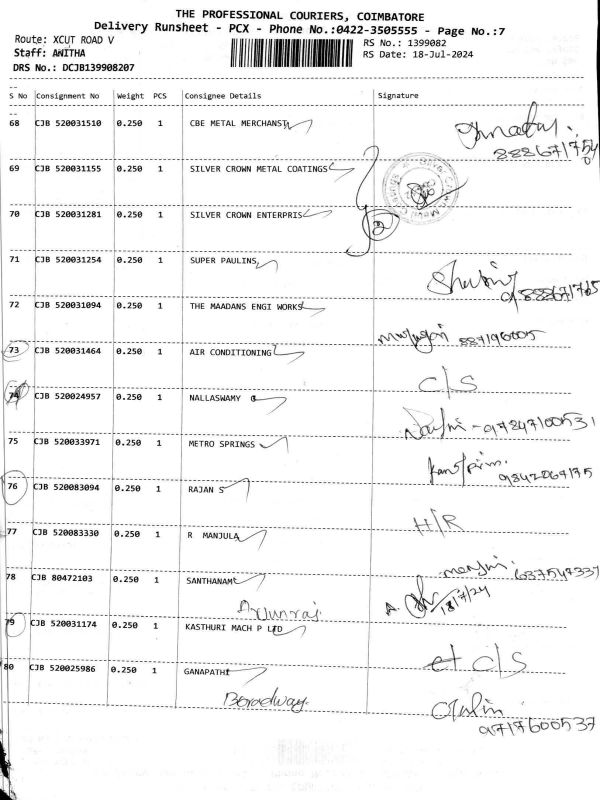 THE PROFESSIONAL COURIERS, COIMBATORE
Delivery Runsheet - PCX - Phone No.:0422-3505555 - Page No.:7
Route: XCUT ROAD V
RS No.: 1399082
Staff: ANITHA
RS Date: 18-Jul-2024
DRS No.: DCJB139908207
S No Consignment No Weight PCS Consignee Details Signature
68 CJB 520031510 0.250 1 CBE METAL MERCHANST
69 CJB 520031155 0.250 1 SILVER CROWN METAL COATINGS
70 CJB 520031281 0.250 1 SILVER CROWN ENTERPRIS
71 CJB 520031254 0.250 1 SUPER PAULINS
72 CJB 520031094 0.250 1 THE MAADANS ENGI WORKS
73 CJB 520031464 0.250 1 AIR CONDITIONING
C/S
74 CJB 520024957 0.250 1 NALLASWAMY G
97847100531
75 CJB 520033971 0.250 1 METRO SPRINGS
9842067175
76 CJB 520083094 0.250 1 RAJAN S
H/R
77 CJB 520083330 0.250 1 R MANJULA
78 CJB 80472103 0.250 1 SANTHANAM
18/7/24
Arjunraj.
79 CJB 520031174 0.250 1 KASTHURI MACH P LTD
C/S
80 CJB 520025986 0.250 1 GANAPATHI
Boradway.
9717600537